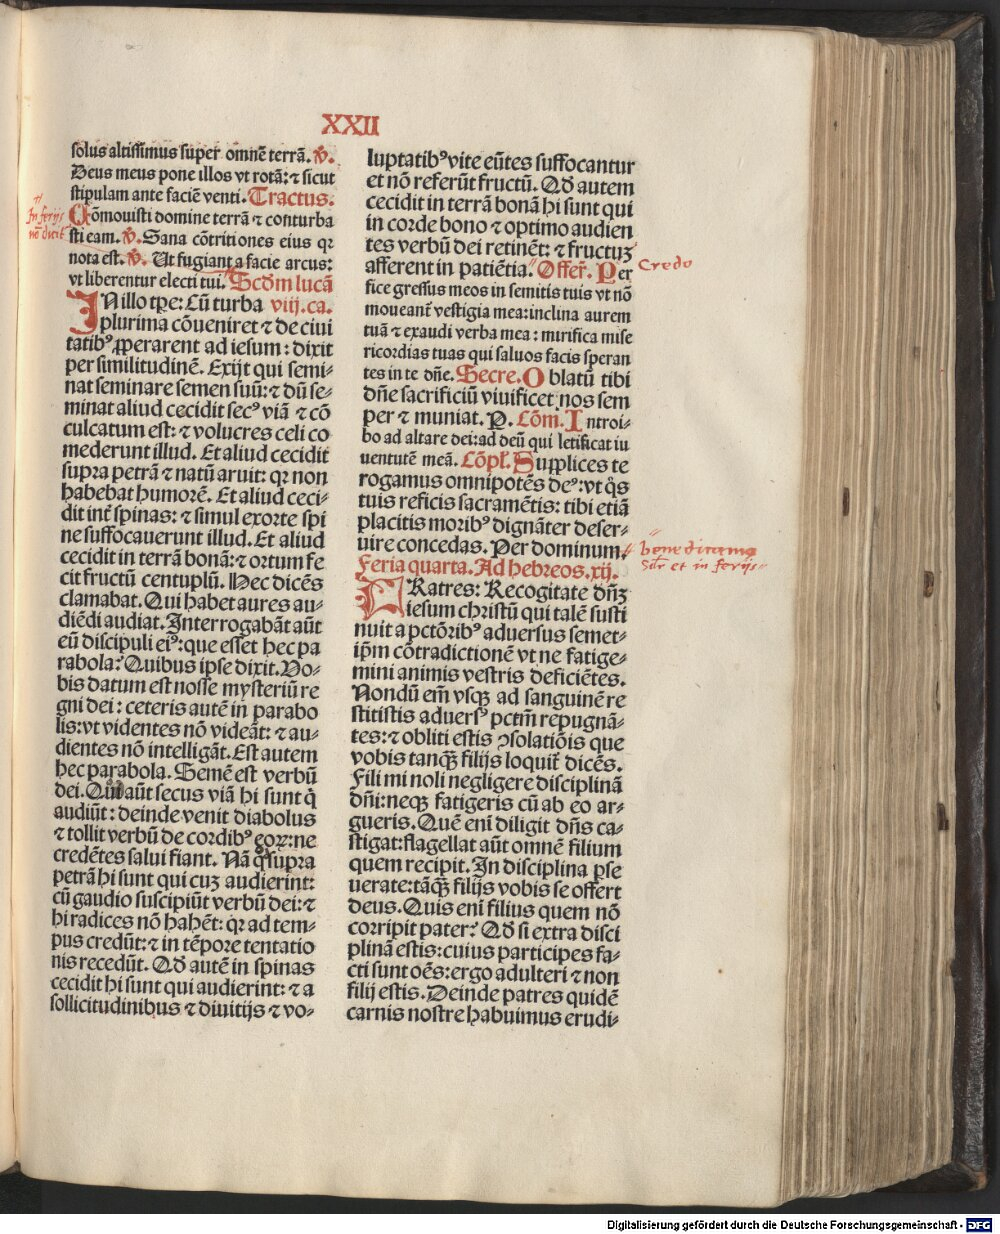 XXII
solus altissimus super omnē terrā. ℣.
Deus meus pone illos vt rotā: ⁊ sicut
stipulam ante faciē venti. Tractus.
Cōmouisti domine terrā ⁊ conturba
sti eam. ℣. Sana cōtritiones eius qꝛ
nota est. ℣. Ut fugiant a facie arcus:
vt liberentur electi tui. Scd̄m lucā
IN illo tp̄e: Cū turba viij. ca.
plurima cōueniret ⁊ de ciui
tatibꝰ ꝓperarent ad iesum: dixit
per similitudinē. Exijt qui semi-
nat seminare semen suū: ⁊ dū se-
minat aliud cecidit secꝰ viā ⁊ cō
culcatum est: ⁊ volucres celi co
mederunt illud. Et aliud cecidit
supra petrā ⁊ natū aruit: qꝛ non
habebat humorē. Et aliud ceci-
dit int̄ spinas: ⁊ simul exorte spi
ne suffocauerunt illud. Et aliud
cecidit in terrā bonā: ⁊ ortum fe
cit fructū centuplū. Hec dicēs
clamabat. Qui habet aures au-
diēdi audiat. Interrogabāt aūt
eū discipuli eiꝰ: que esset hec pa
rabola? Quibus ipse dixit. Vo-
bis datum est nosse mysteriū re
gni dei: ceteris autē in parabo
lis: vt videntes nō videāt: ⁊ au-
dientes nō intelligāt. Est autem
hec parabola. Semē est verbū
dei. Qui aūt secus viā hi sunt q̄
audiūt: deinde venit diabolus
⁊ tollit verbū de cordibꝰ eoꝝ: ne
credētes salui fiant. Nā q̄ supra
petrā hi sunt qui cuꝫ audierint:
cū gaudio suscipiūt verbū dei: ⁊
hi radices nō habēt: qꝛ ad tem-
pus credūt: ⁊ in tēpore tentatio
nis recedūt. Qd̄ autē in spinas
cecidit hi sunt qui audierint: ⁊ a
sollicitudinibus ⁊ diuitijs ⁊ vo-
luptatibꝰ vite eūtes suffocantur
et nō referūt fructū. Qd̄ autem
cecidit in terrā bonā hi sunt qui
in corde bono ⁊ optimo audien
tes verbū dei retinēt: ⁊ fructuꝫ
afferent in patiētia. Offer̄. Per
fice gressus meos in semitis tuis vt nō
moueant̄ vestigia mea: inclina aurem
tuā ⁊ exaudi verba mea: mirifica mise
ricordias tuas qui saluos facis speran
tes in te dn̄e. Secre. Oblatū tibi
dn̄e sacrificiū viuificet nos sem
per ⁊ muniat. P. Cōm. Introi-
bo ad altare dei: ad deū qui letificat iu
uentutē meā. Cōpl̄. Supplices te
rogamus omnipotēs deꝰ: vt q̄s
tuis reficis sacramētis: tibi etiā
placitis moribꝰ dignāter deser-
uire concedas. Per dominum.
Feria quarta. Ad hebreos. xij.
FRatres: Recogitate dn̄ꝫ
iesum christū qui talē susti
nuit a pctōribꝰ aduersus semet-
ip̄m cōtradictionē vt ne fatige-
mini animis vestris deficiētes.
Nondū em̄ vsqꝫ ad sanguinē re
stitistis aduersꝰ pctm̄ repugnā-
tes: ⁊ obliti estis ꝯsolatiōis que
vobis tanqꝫ filijs loquit̄ dicēs.
Fili mi noli negligere disciplinā
dn̄i: neqꝫ fatigeris cū ab eo ar-
gueris. Quē eni diligit dn̄s ca-
stigat: flagellat aūt omnē filium
quem recipit. In disciplina ꝑse
uerate: tāqꝫ filijs vobis se offert
deus. Quis eni filius quem nō
corripit pater? Qd̄ si extra disci
plinā estis: cuius participes fa-
cti sunt oēs: ergo adulteri ⁊ non
filij estis. Deinde patres quidē
carnis nostre habuimus erudi-
In ferijs
nō dicit̄
Credo
benedicamus
Silr et in ferijs
Digitalisierung gefördert durch die Deutsche Forschungsgemeinschaft - DFG